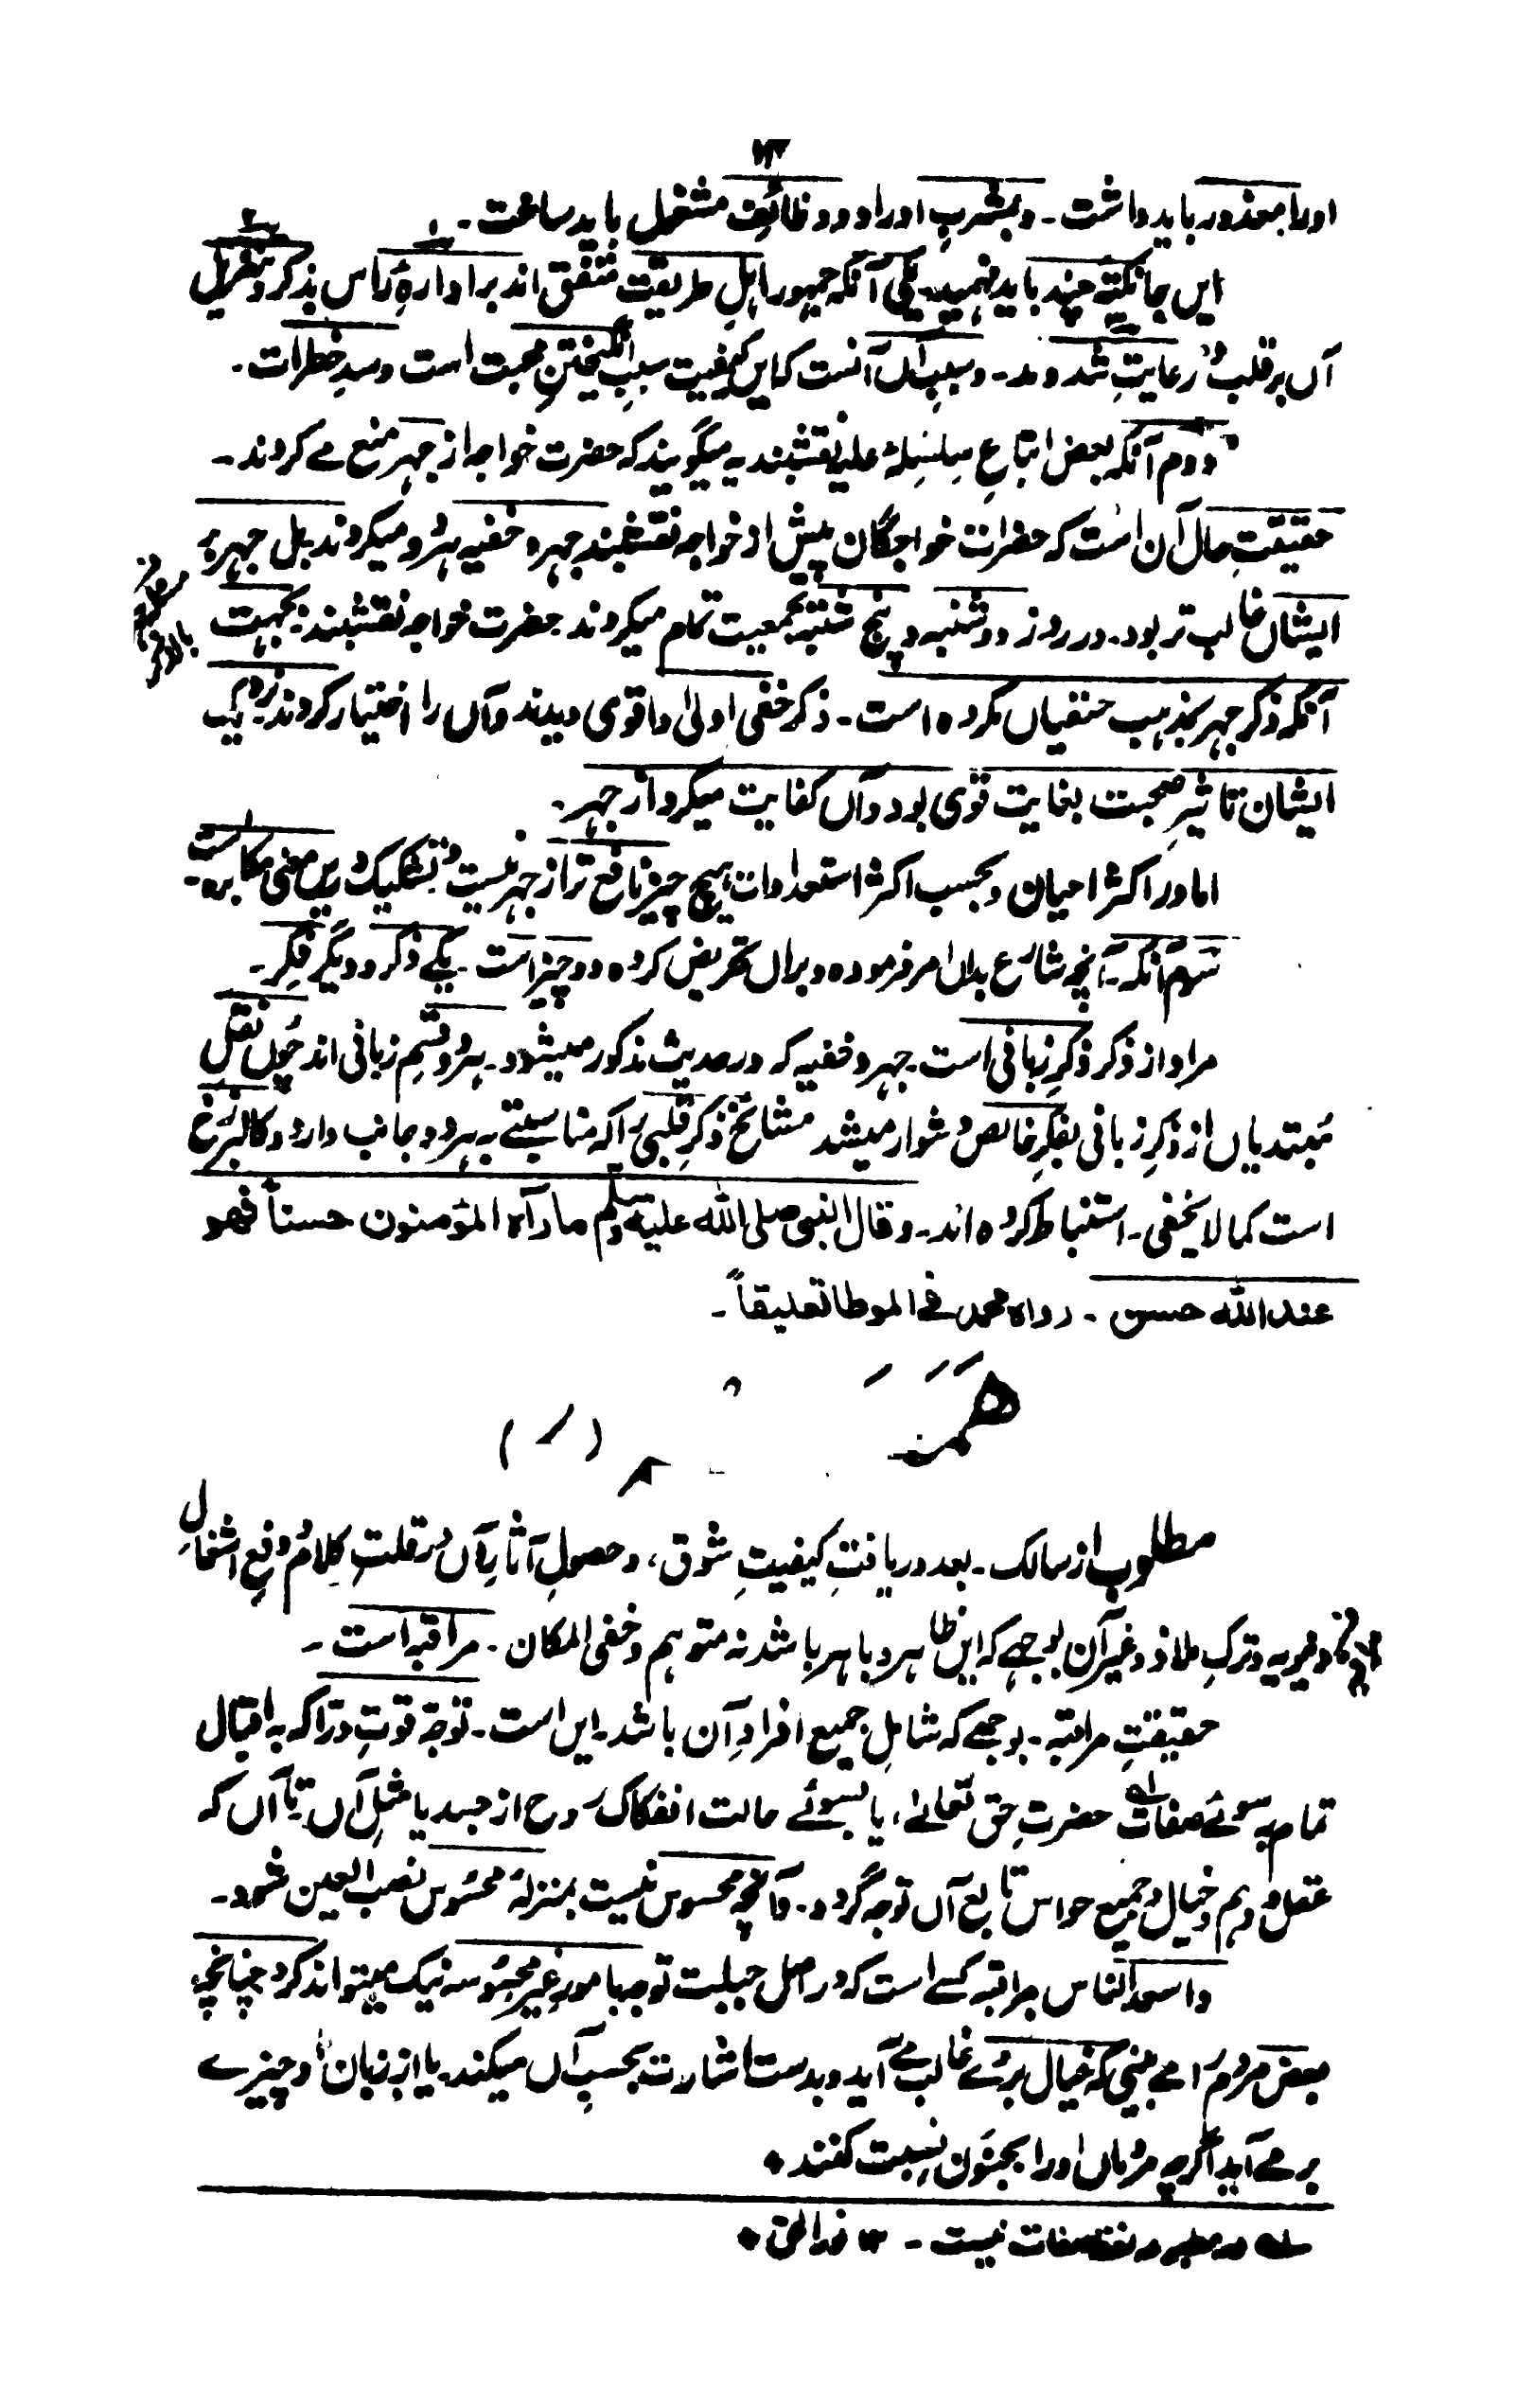 اورا معذور باید داشت ۔ و بمشرب اوراد و وظائف مشغول باید ساخت ۔
ایں جا نکتۂ چند باید فہمید ۔ یکی آنکہ جمہور اہلِ طریقت متفق اند بر ادارۂ راس بذکر و تنزیل
آں بر قلب و رعایتِ شد و مد ۔ و سببِ آں آنست کہ ایں کیفیت سببِ انگیختنِ محبت است و سدِ خطرات ۔
دوم آنکہ بعض اتباعِ سلسلۂ علیہ نقشبندیہ میگویند کہ حضرت خواجہ از جہر منع مے کردند ۔
حقیقتِ حال آن است کہ حضرات خواجگان پیش از خواجہ نقشبند جہر و خفیہ ہر دو میکردند بل جہر بر
ایشاں غالب تر بود ۔ در روز دوشنبہ و پنج شنبہ بجمعیت تمام میکردند حضرت خواجہ نقشبند بجہت
آنکہ ذکر جہر بمذہب حنفیاں مکروہ است ۔ ذکر خفی اولیٰ و اقوی دیدند و آں را اختیار کردند
ایشان تاثیرِ صحبت بغایت قوی بود و آں کفایت میکرد از جہر ۔
اما در اکثر احیان و بحسب اکثر استعدادات ہیچ چیز نافع تر از جہر نیست و تشکیک دریں معنی مکابرہ است ۔
سوم آنکہ ۔ آنچہ شارع بداں امر فرمودہ و براں تحریض کردہ دو چیز است ۔ یکے ذکر و دیگر فکر ۔
مراد از ذکر ذکرِ زبانی است ۔ جہر و خفیہ کہ در حدیث مذکور میشود ۔ ہر دو قسمِ زبانی اند چوں نقل
مبتدیاں از ذکرِ زبانی بفکرِ خالص دشوار میشد مشائخ ذکرِ قلبی را کہ مناسبتے بہ ہر دو جانب دارد و کالبرزخ
است کما لا یخفی ۔ استنباط کردہ اند ۔ وقال النبی صلی اللہ علیہ وسلم ما رآہ المؤمنون حسناً فھو
عند اللہ حسن ۔ رواہ محمد فی الموطا تعلیقاً ۔
مطلوب از سالک ۔ بعد دریافتِ کیفیتِ شوق، و حصولِ آثارِ آں در قلتِ کلام و رفعِ اشغالِ
دنیویہ و ترکِ ملاذ و غیرِ آن بوجہے کہ ایں ظاہر و باہر باشد نہ متوہم و خفی المکان ۔ مراقبہ است ۔
حقیقتِ مراقبہ ۔ بوجہے کہ شاملِ جمیع افرادِ آن باشد ۔ ایں است ۔ توجہِ قوتِ دراکہ بہ اقبال
تمام بسوئے صفات حضرتِ حق تعالےٰ، یا بسوئے حالت انفکاک روح از جسد یا مثلِ آں تا آں کہ
عقل و وہم و خیال و جمیع حواس تابع آں توجہ گردد ۔ و آنچہ محسوس نیست بمنزلۂ محسوس نصب العین شود ۔
و اسعد الناس بمراقبہ کسے است کہ در اصل جبلت توجہ بامورِ غیر محسوسہ نیک میتواند کرد چنانچہ
بعض مردم را مے بینی کہ خیال بروے غالب مے آید و بدست اشارت بحسبِ آں میکند یا از زبانِ او چیزے
برمے آید اگرچہ مردماں او را بجنون نسبت کنند ۔